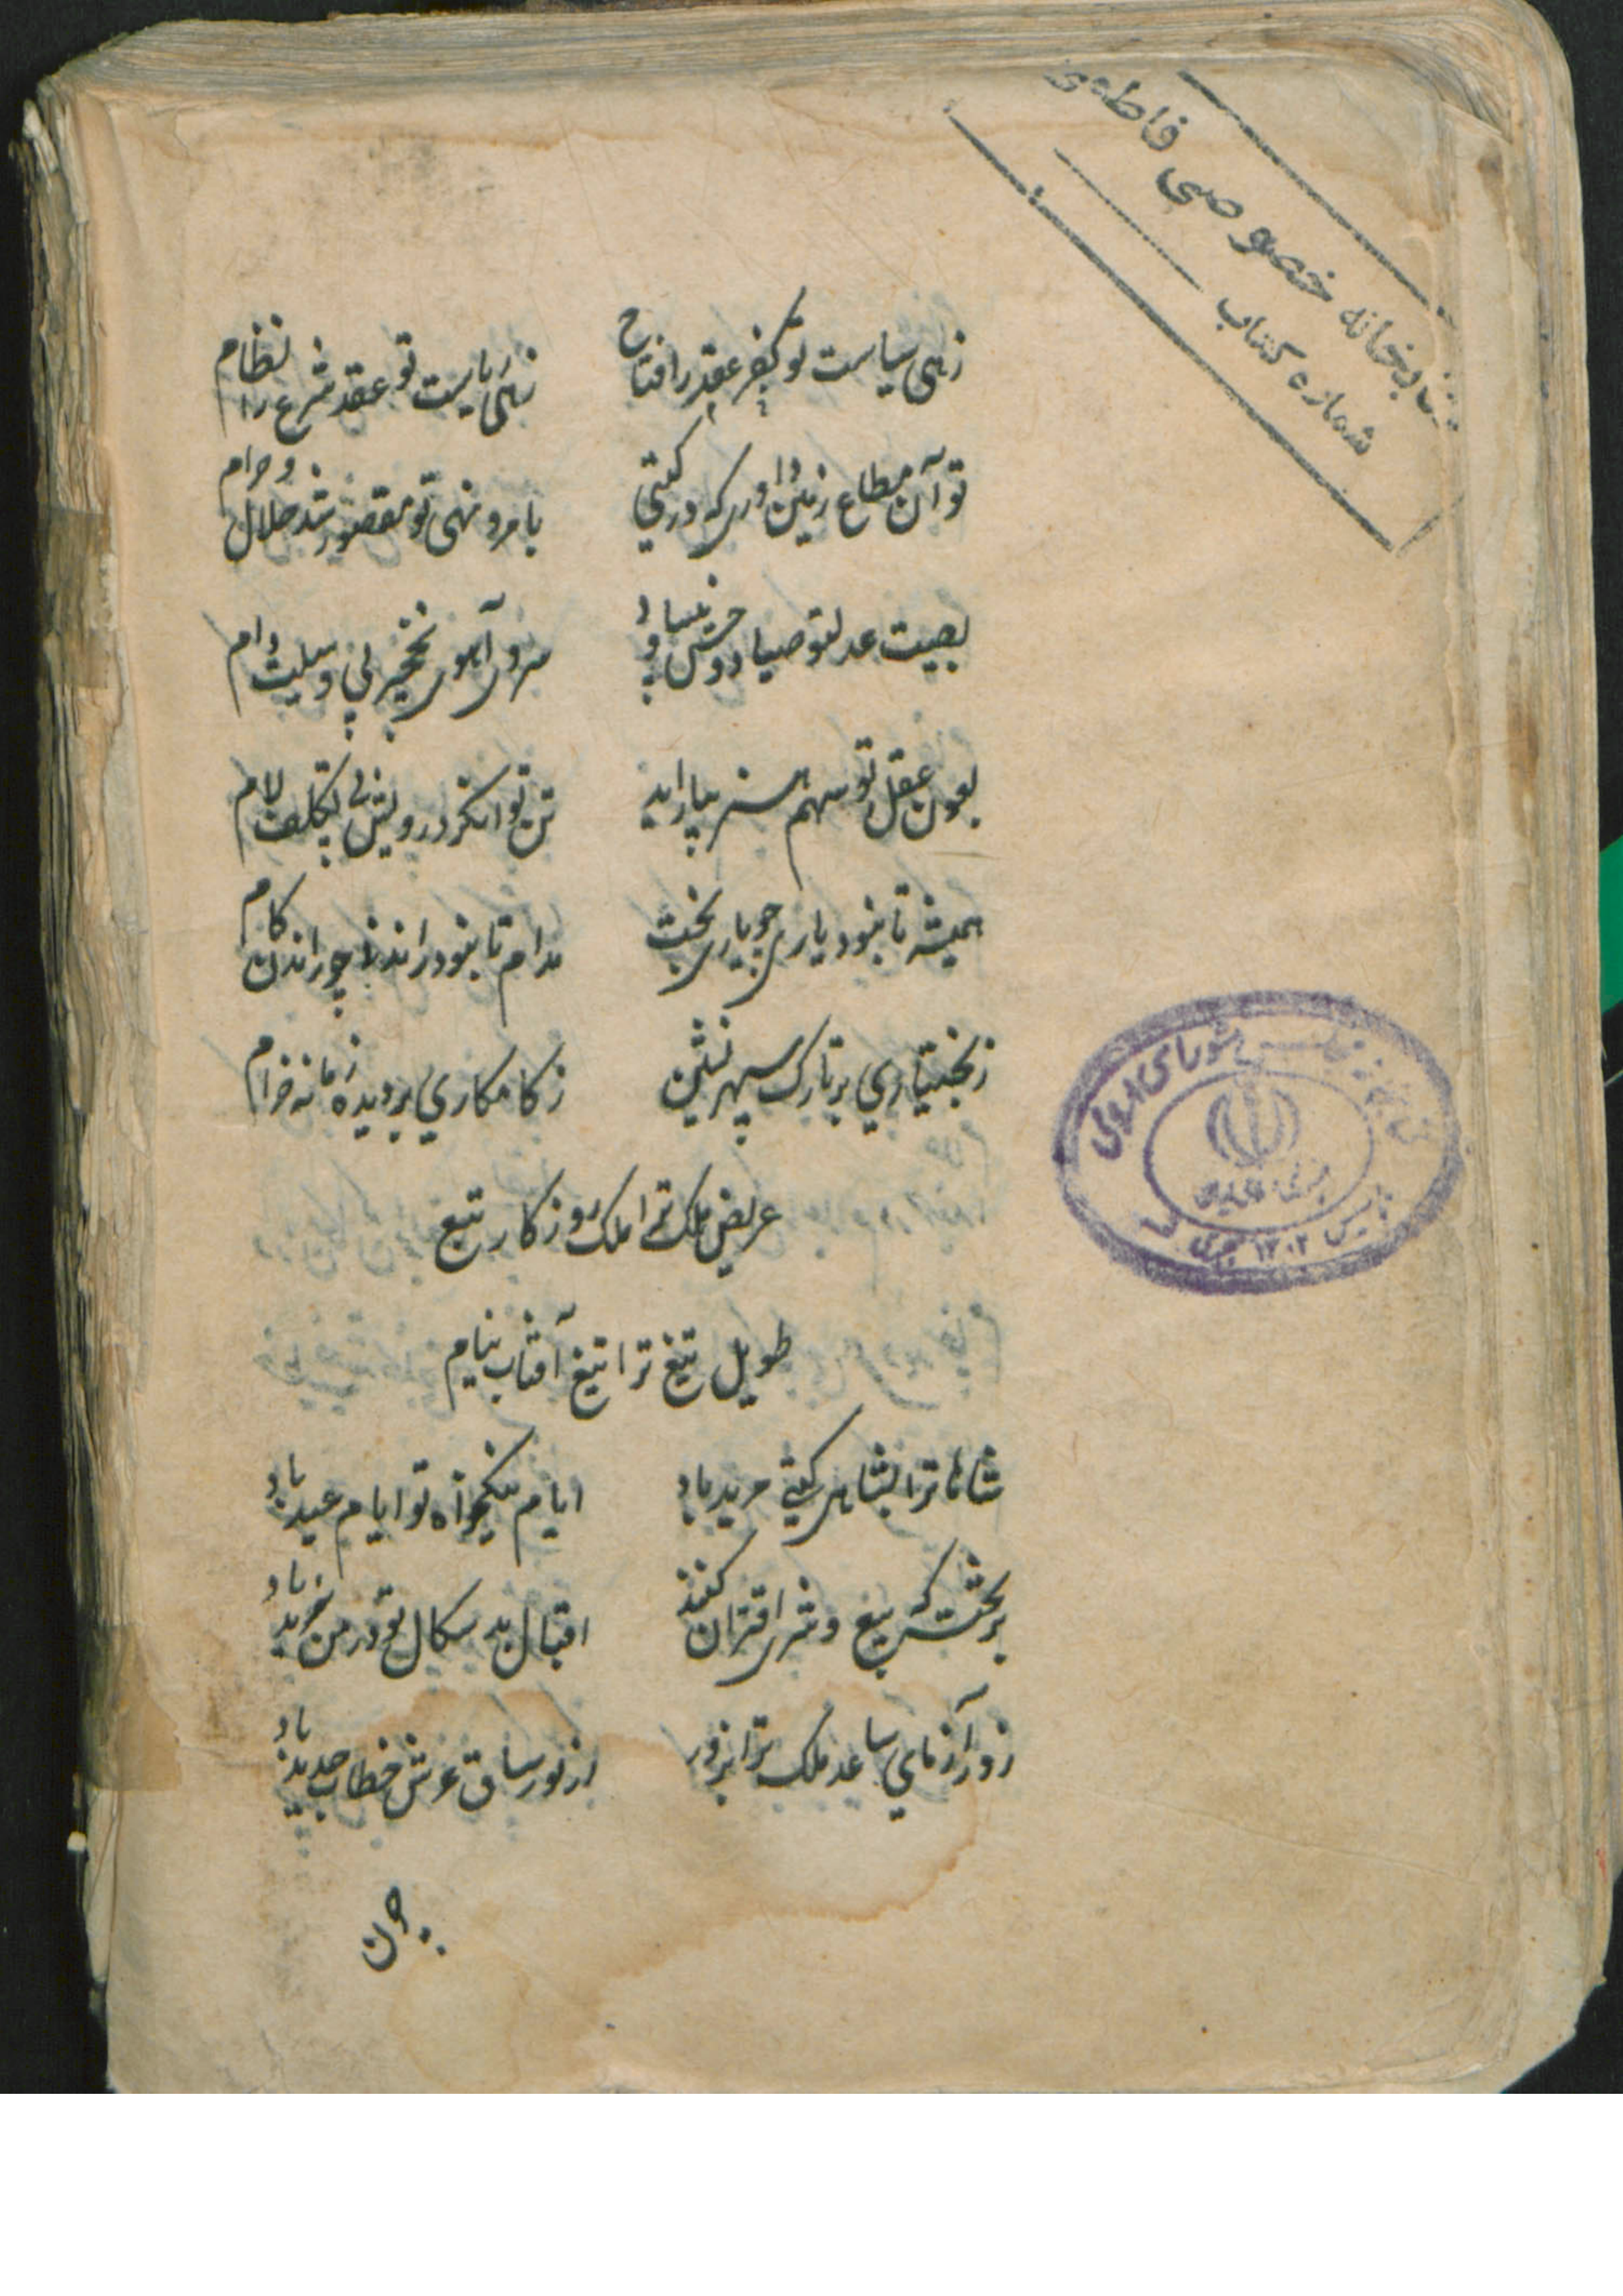 کتابخانه خصوصی فاطمی
شماره کتاب
زهی سیاست تو کفر عقد را فتاح زهی ریاست تو عقد شرع را نظام
تو آن مطاع زمین داوری که در گیتی بامر و نهی تو مقصور شد حلال و حرام
بصیت عدل تو صیاد وحش و سرو آهوی نخجیر بی وسیلت دام
بعون عقل تو سهم هنر بیاراید تن توانگر و درویش بی تکلف لام
همیشه تا نبود یاری چو یاری بخت مدام تا نبود راندنی چو راندن کام
ز بختیاری بر تارک سپهر نشین ز کامکاری بر دیده زمانه خرام
عریض ملک ترا ملک روزگار تبع
طویل تیغ ترا تیغ آفتاب نیام
شاها ترا بشاهی گیتی مزید باد ایام نیکخواه تو ایام عید باد
بر تخت که بیع و شری اقتران کنند اقبال بد سکال تو در من یزید باد
زور آزمای ساعد ملک ترا بزور از نور ساق عرش خطاب جدید باد
چون
شورای ملی
تاسیس ۱۳۰۲ هجری